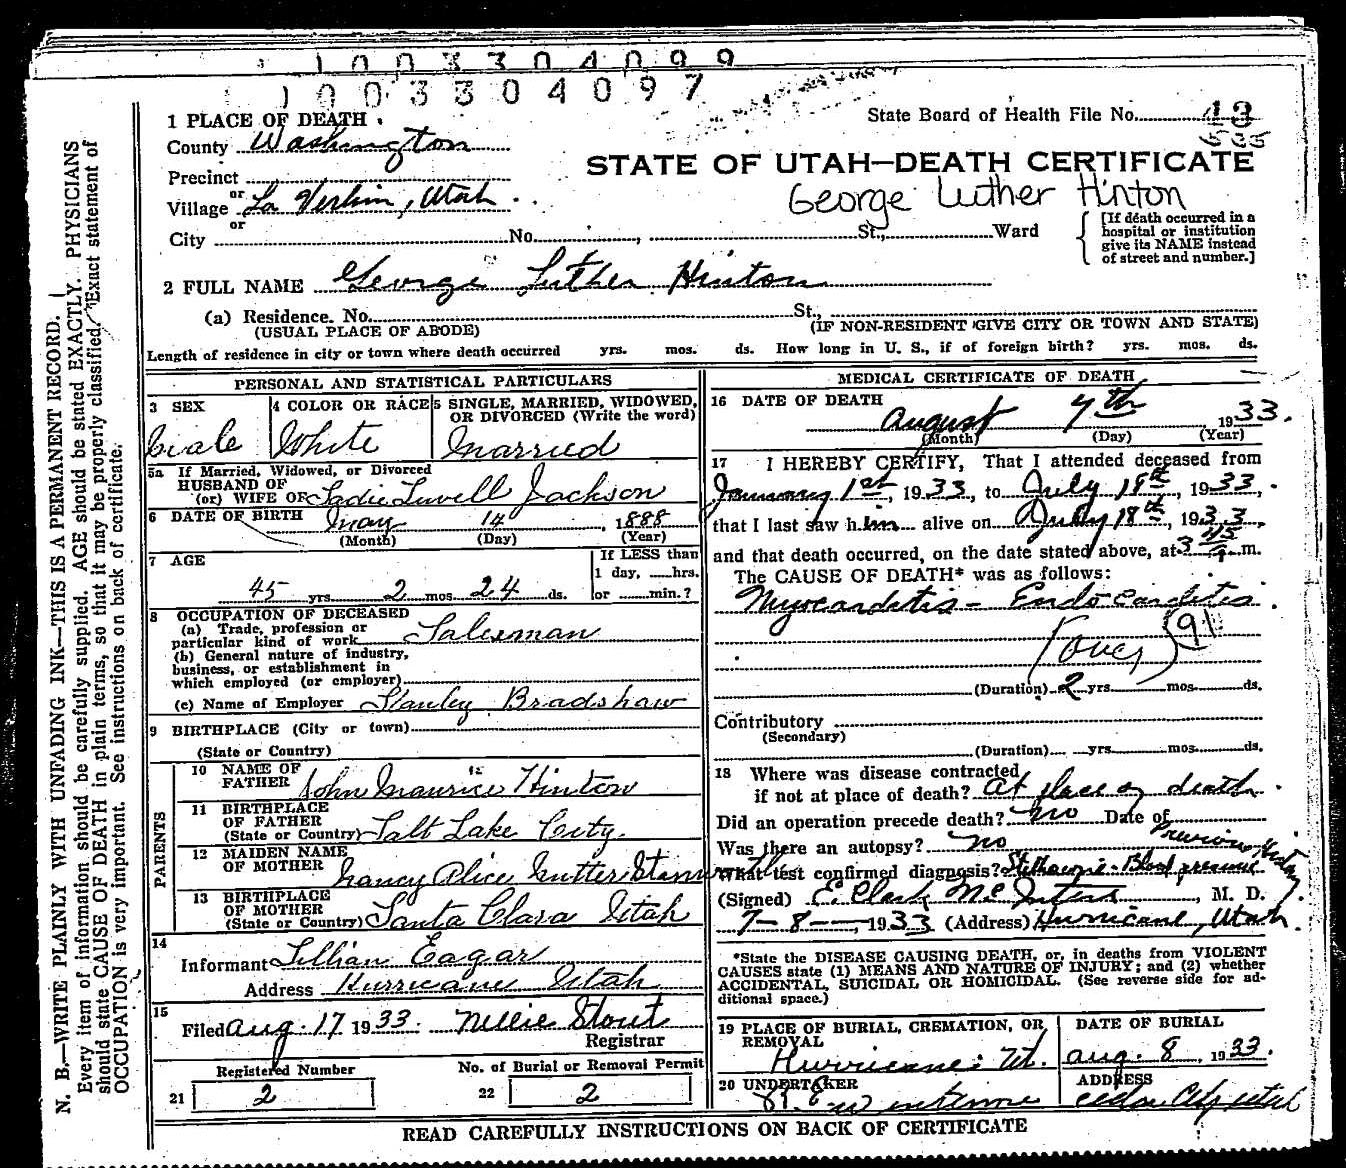 1003304099
1003304097
1 PLACE OF DEATH
State Board of Health File No. 13
County Washington
535
STATE OF UTAH—DEATH CERTIFICATE
Precinct
George Luther Hinton
or
Village La Verkin, Utah
or
City No. , St., Ward
[If death occurred in a hospital or institution give its NAME instead of street and number.]
2 FULL NAME George Luther Hinton
(a) Residence. No. St.,
(USUAL PLACE OF ABODE) (IF NON-RESIDENT GIVE CITY OR TOWN AND STATE)
Length of residence in city or town where death occurred yrs. mos. ds. How long in U. S., if of foreign birth? yrs. mos. ds.
PERSONAL AND STATISTICAL PARTICULARS
3 SEX
Male
4 COLOR OR RACE
White
5 SINGLE, MARRIED, WIDOWED, OR DIVORCED (Write the word)
Married
5a If Married, Widowed, or Divorced
HUSBAND OF
(or) WIFE OF Sadie Luvell Jackson
6 DATE OF BIRTH May 14, 1888
(Month) (Day) (Year)
7 AGE
If LESS than
1 day, hrs.
45 yrs. 2 mos. 24 ds. or min.?
8 OCCUPATION OF DECEASED
(a) Trade, profession or
particular kind of work Salesman
(b) General nature of industry,
business, or establishment in
which employed (or employer)
(c) Name of Employer Stanley Bradshaw
9 BIRTHPLACE (City or town)
(State or Country)
PARENTS
10 NAME OF
FATHER John Maurice Hinton
11 BIRTHPLACE
OF FATHER
(State or Country) Salt Lake City
12 MAIDEN NAME
OF MOTHER Nancy Alice Stanworth
13 BIRTHPLACE
OF MOTHER
(State or Country) Santa Clara Utah
14
Informant Lillian Eagar
Address Hurricane Utah
15
Filed Aug. 17 1933. Nellie Stout
Registrar
Registered Number No. of Burial or Removal Permit
21 2 22 2
MEDICAL CERTIFICATE OF DEATH
16 DATE OF DEATH
August 7th 1933.
(Month) (Day) (Year)
17 I HEREBY CERTIFY, That I attended deceased from
January 1st, 1933, to July 18th, 1933,
that I last saw him alive on July 18th, 1933,
and that death occurred, on the date stated above, at 3 45 m.
The CAUSE OF DEATH* was as follows:
Myocarditis - Endocarditis.
91
(Duration) 2 yrs. mos. ds.
Contributory
(Secondary)
(Duration) yrs. mos. ds.
18 Where was disease contracted
if not at place of death? At place of death.
Did an operation precede death? No Date of
Was there an autopsy? No Previous history
What test confirmed diagnosis? Stethoscope - Blood pressure
(Signed) E. Clark McIntire, M. D.
7-8- 1933 (Address) Hurricane, Utah.
*State the DISEASE CAUSING DEATH, or, in deaths from VIOLENT
CAUSES state (1) MEANS AND NATURE OF INJURY; and (2) whether
ACCIDENTAL, SUICIDAL OR HOMICIDAL. (See reverse side for ad-
ditional space.)
19 PLACE OF BURIAL, CREMATION, OR
REMOVAL
Hurricane Ut.
DATE OF BURIAL
Aug. 8, 1933.
20 UNDERTAKER
ADDRESS
Cedar City Utah
READ CAREFULLY INSTRUCTIONS ON BACK OF CERTIFICATE
N. B.—WRITE PLAINLY WITH UNFADING INK—THIS IS A PERMANENT RECORD.
Every item of information should be carefully supplied. AGE should be stated EXACTLY. PHYSICIANS
should state CAUSE OF DEATH in plain terms, so that it may be properly classified. Exact statement of
OCCUPATION is very important. See instructions on back of certificate.